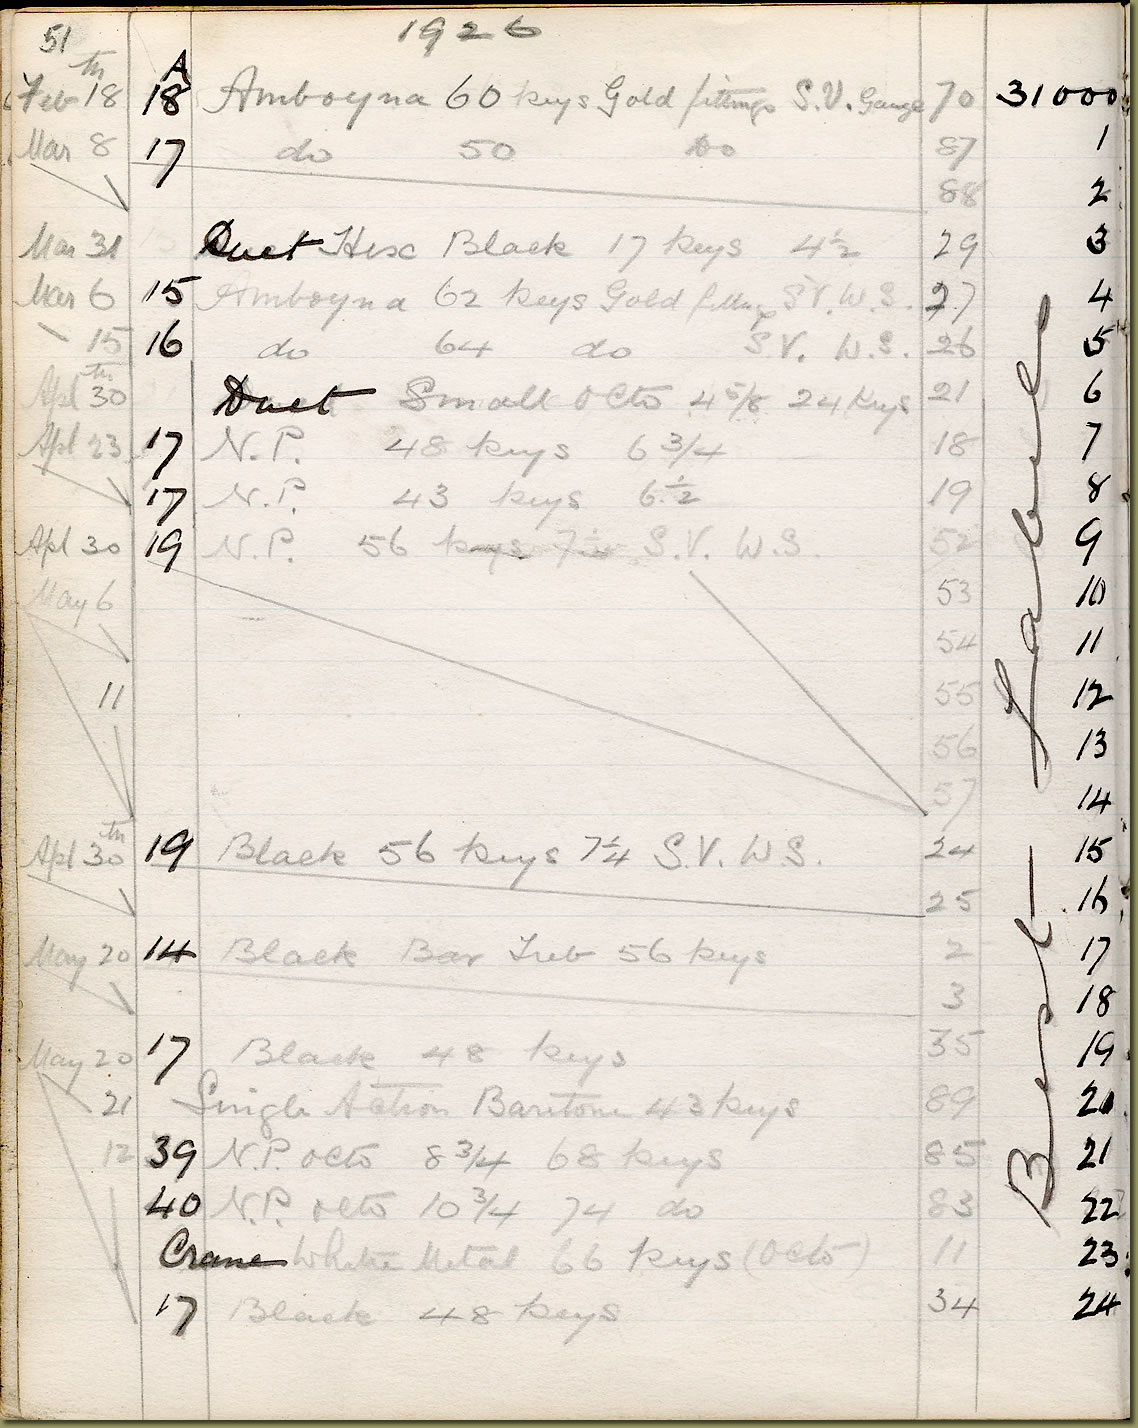 51 1926
Feb 18th 18 A Amboyna 60 keys Gold fittings S.V. Gauge 70 31000
Mar 8 17 do 50 Do 87 1
88 2
Mar 31 Duet Hex Black 17 keys 4½ 29 3
Mar 6 15 Amboyna 62 keys Gold fittings S.V. W.S. 27 4
15 16 do 64 do S.V. W.S. 26 5
Apl 30th Duet Small Octo 4 5/8 24 Keys 21 6
Apl 23 17 N.P. 48 keys 6 3/4 18 7
17 N.P. 43 keys 6½ 19 8
Apl 30 19 N.P. 56 keys 7¼ S.V. W.S. 52 9
May 6 53 10
54 11
11 55 12
56 13
57 14
Apl 30th 19 Black 56 keys 7¼ S.V. W.S. 24 15
25 16
May 20 14 Black Bar Treb 56 keys 2 17
3 18
May 20 17 Black 48 keys 35 19
21 Single Action Baritone 43 keys 89 20
12 39 N.P. Octo 8 3/4 68 keys 85 21
40 N.P. octo 10 3/4 74 do 83 22
Crane White Metal 66 keys (Octo) 11 23
17 Black 48 keys 34 24
Best Labels